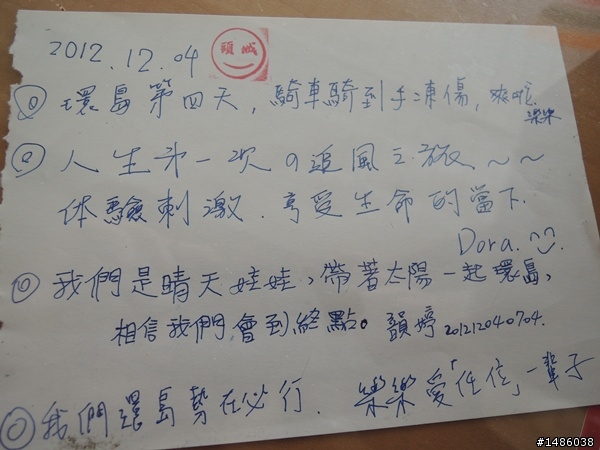 2012.12.04 頭城
環島第四天,騎車騎到手凍傷,爽啦
樂樂
人生第一次の追風之旅~~
体驗刺激.享受生命的當下.
Dora.
我們是晴天娃娃,帶著太陽一起環島,
相信我們會到終點。韻婷 201212040704.
我們環島勢在必行. 樂樂愛「任信」一輩子
#1486038